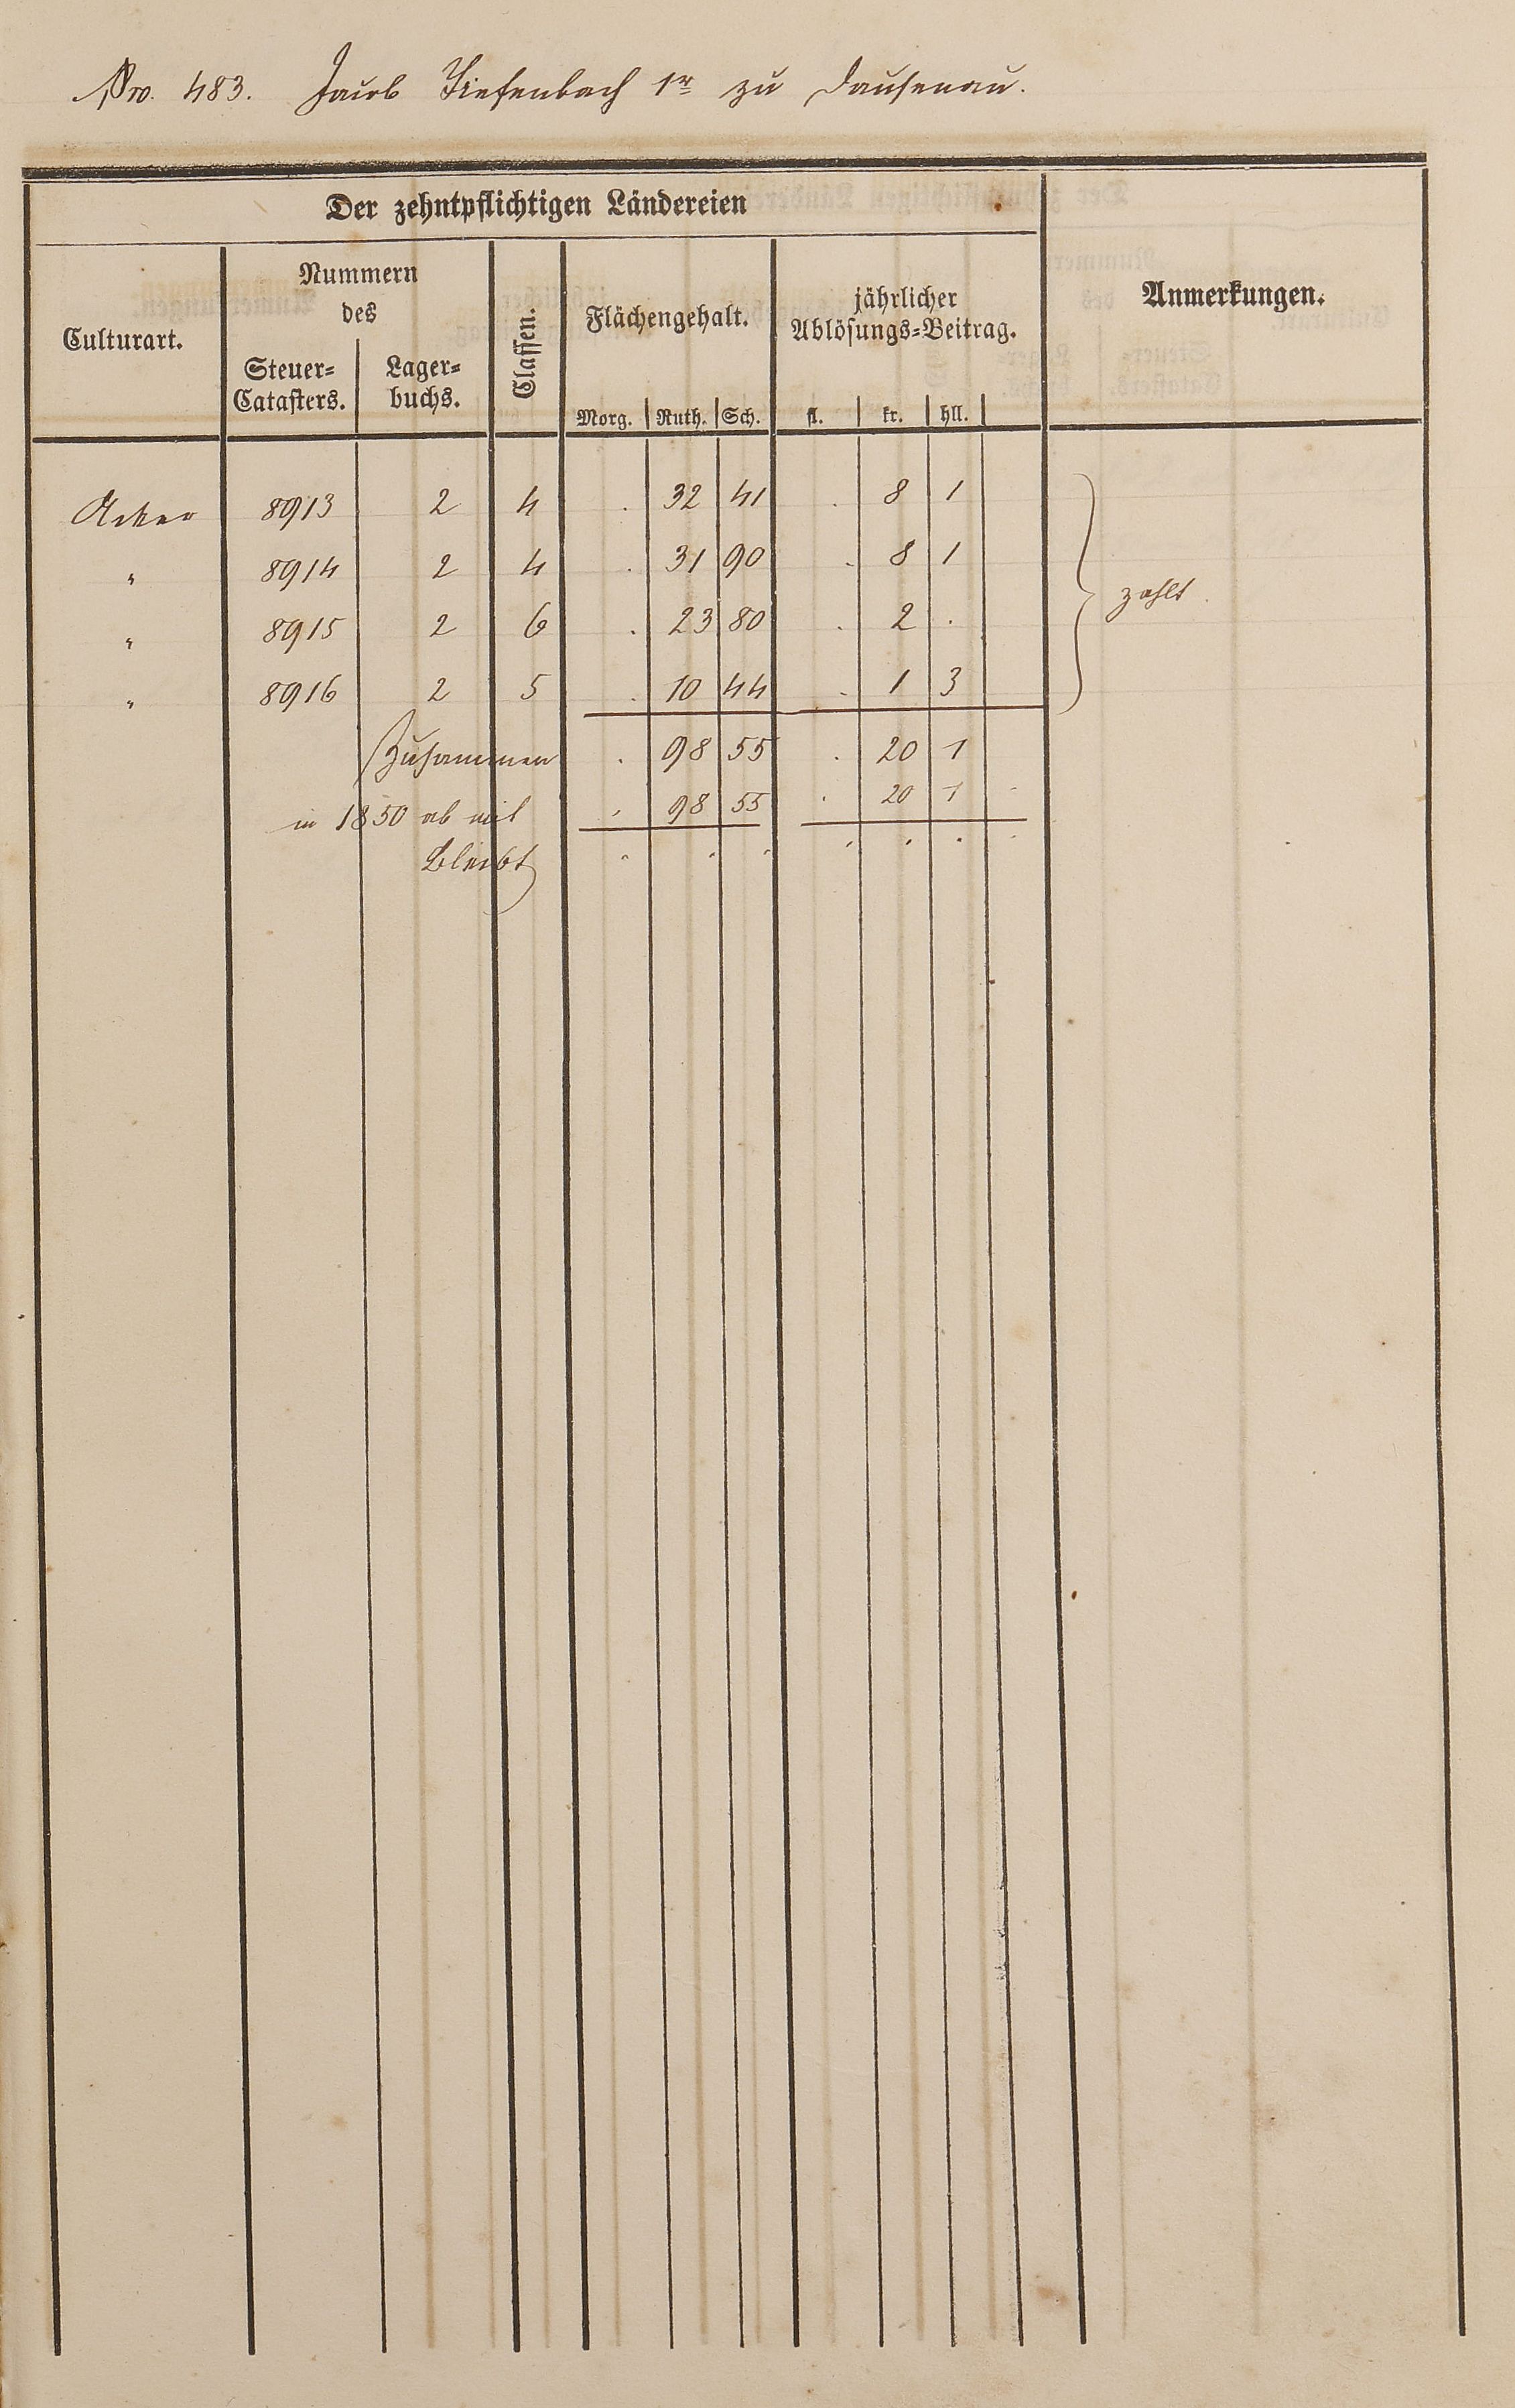 Nro. 483. Jacob Tiefenbach 1r zu Dausenau.
Der zehntpflichtigen Ländereien
Culturart. Nummern des Steuer=Catasters. Lager=buchs. Classen. Flächengehalt. jährlicher Ablösungs=Beitrag. Anmerkungen.
Morg. Ruth. Sch. fl. kr. hll.
Acker 8913 2 4 . 32 41 . 8 1
" 8914 2 4 . 31 90 . 8 1
zahlt
" 8915 2 6 . 23 80 . 2 .
" 8916 2 5 . 10 44 . 1 3
Zusammen . 98 55 . 20 1
in 1850 ab mit . 98 55 . 20 1 .
Bleibt . . . . . . .